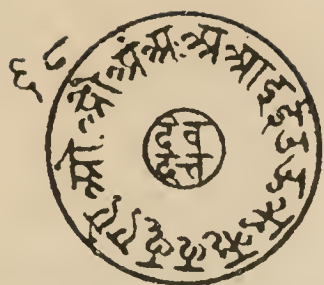 अ आ इ ई उ ऊ ऋ ॠ ऌ ॡ ए ऐ ओ औ अं अः
देव
दत्त